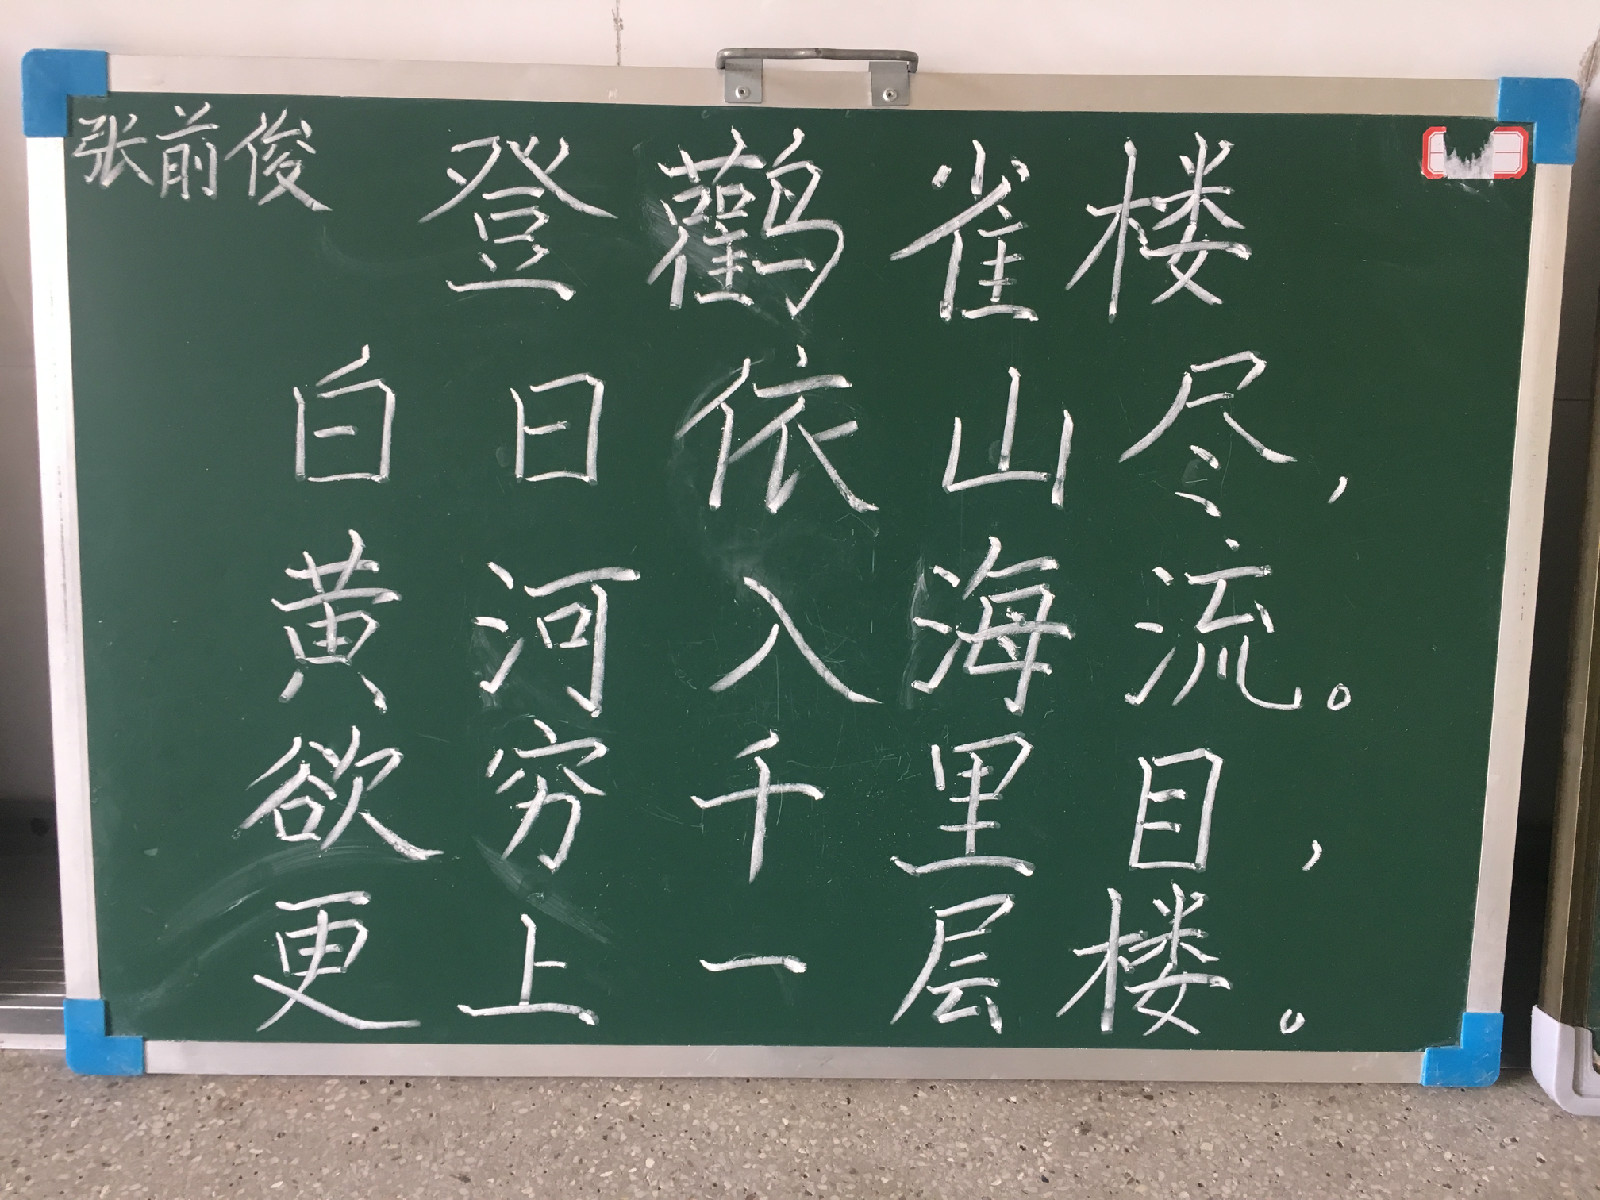 张前俊
登鹳雀楼
白日依山尽，
黄河入海流。
欲穷千里目，
更上一层楼。